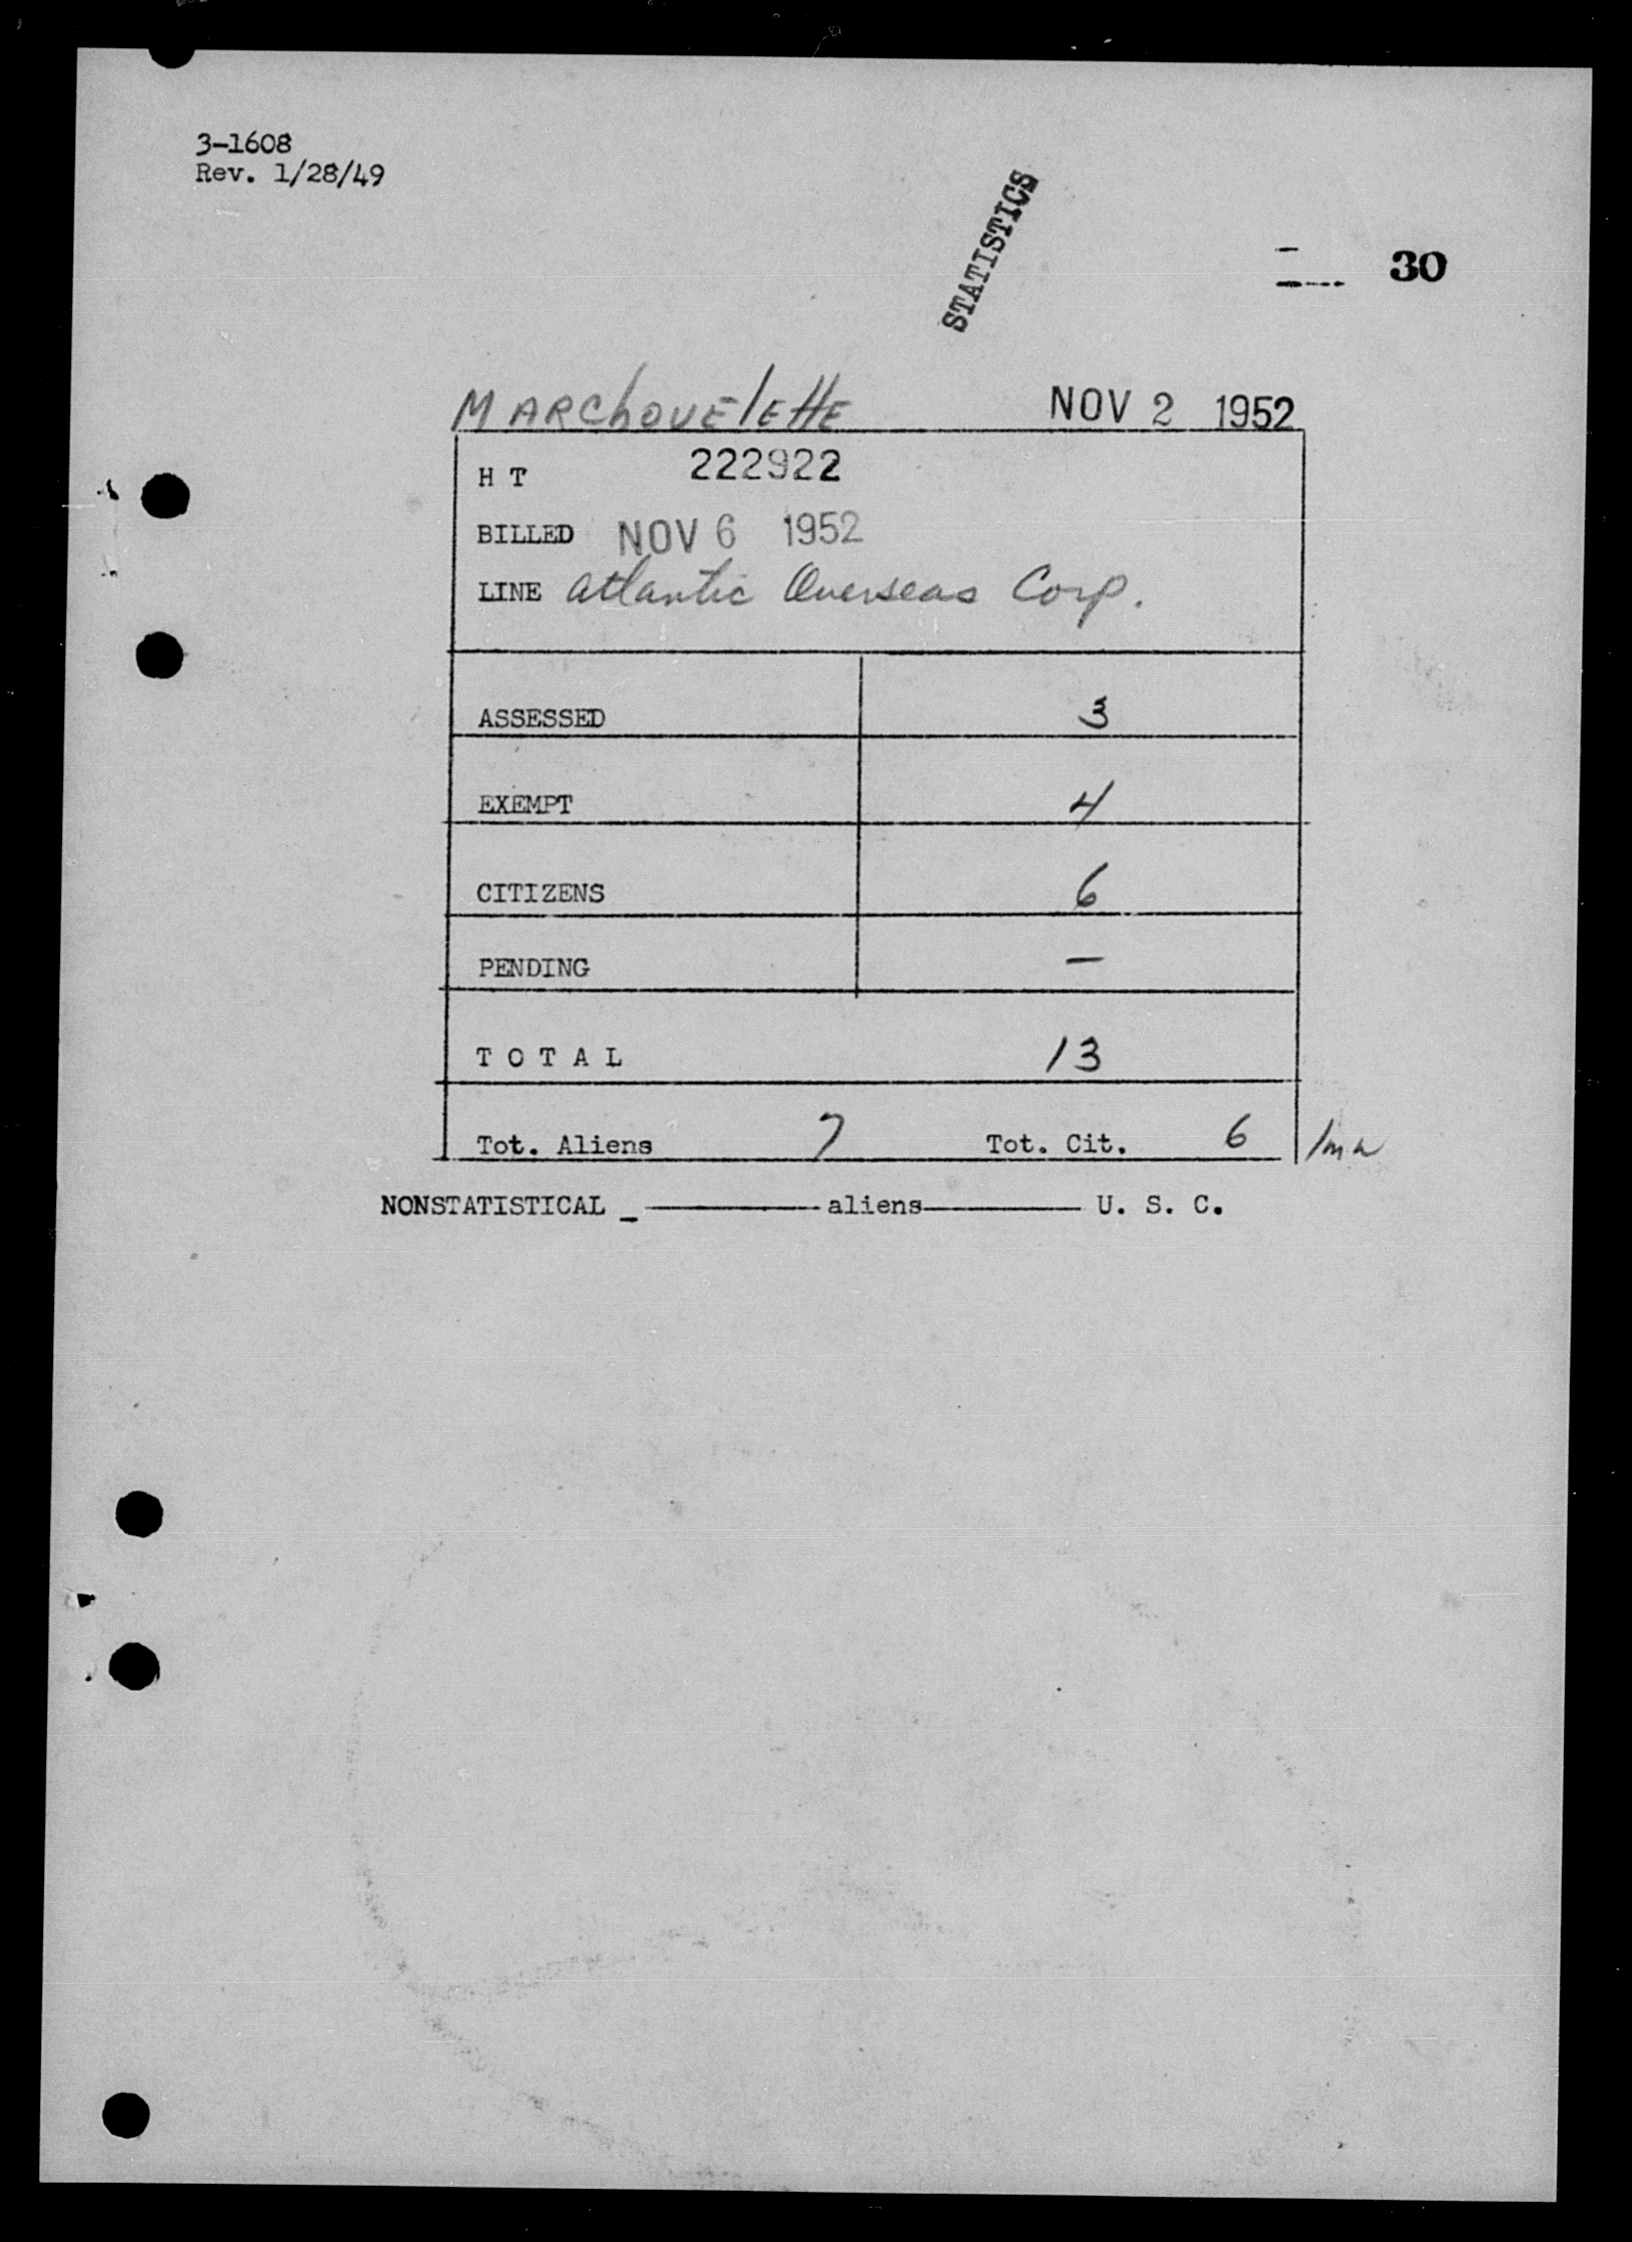 3-1608
Rev. 1/28/49
STATISTICS
30
MARChOVElEttE NOV 2 1952
H T 222922
BILLED NOV 6 1952
LINE Atlantic Overseas Corp.
ASSESSED 3
EXEMPT 4
CITIZENS 6
PENDING —
T O T A L 13
Tot. Aliens 7 Tot. Cit. 6
NONSTATISTICAL _ ———— aliens ———— U. S. C.